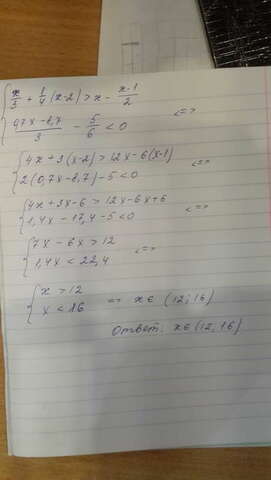 { x/3 + 1/4 (x-2) > x - (x-1)/2
(0,7x-8,7)/3 - 5/6 < 0 <=>
{ 4x + 3(x-2) > 12x - 6(x-1)
2(0,7x-8,7) - 5 < 0 <=>
{ 4x + 3x - 6 > 12x - 6x + 6
1,4x - 17,4 - 5 < 0 <=>
{ 7x - 6x > 12
1,4x < 22,4 <=>
{ x > 12
x < 16 => x ∈ (12; 16)
Ответ: x ∈ (12, 16)